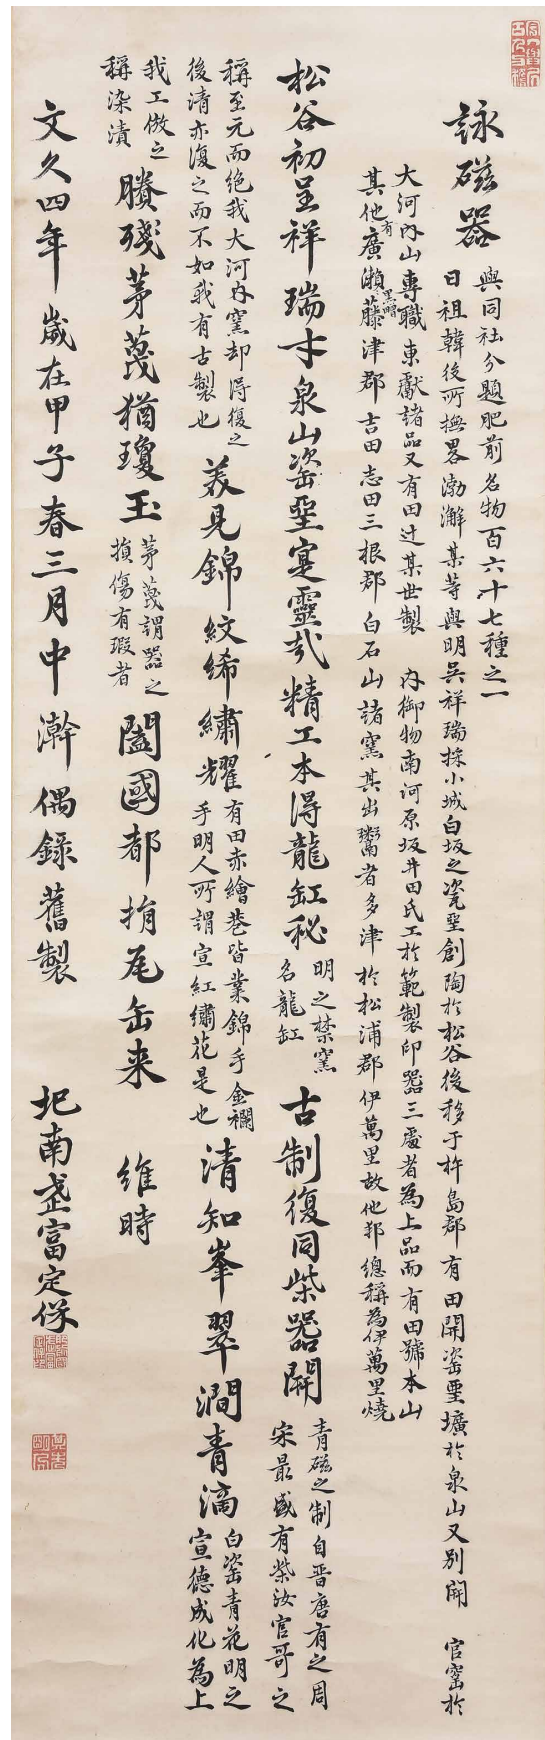 詠磁器
與同社分題肥前名物百六十七種之一
日祖韓後所撫畧渤澥某等與明吳祥瑞採小城白坂之瓷堊創陶於松谷後移于杵島郡有田開窰堊壙於泉山又別開 官窑於
大河内山專職東獻諸品又有田辻某世製 内御物南河原坂井田氏工於範製印器三處者為上品而有田號本山
其他有廣瀨黑嚕藤津郡吉田志田三根郡白石山諸窯其出鬻者多津於松浦郡伊萬里故他邦總稱為伊萬里燒
松谷初呈祥瑞才泉山窰堊寔靈哉精工本得龍缸秘
明之禁窯
名龍缸
古制復同柴器開
青磁之制自晋唐有之周
宋最盛有柴汝官哥之
稱至元而絶我大河内窯却得復之
後清亦復之而不如我有古製也
美見錦紋絺繡耀
有田赤繪巷皆業錦手金襴
手明人所謂宣紅繡花是也
清知峯翠澗青滴
白窰青花明之
宣德成化為上
我工倣之
稱染漬
賸殘茅蔑猶瓊玉
茅蔑謂器之
損傷有瑕者
闔國都捎尾缶来
維時
文久四年歲在甲子春三月中澣偶錄舊製
圯南武富定保